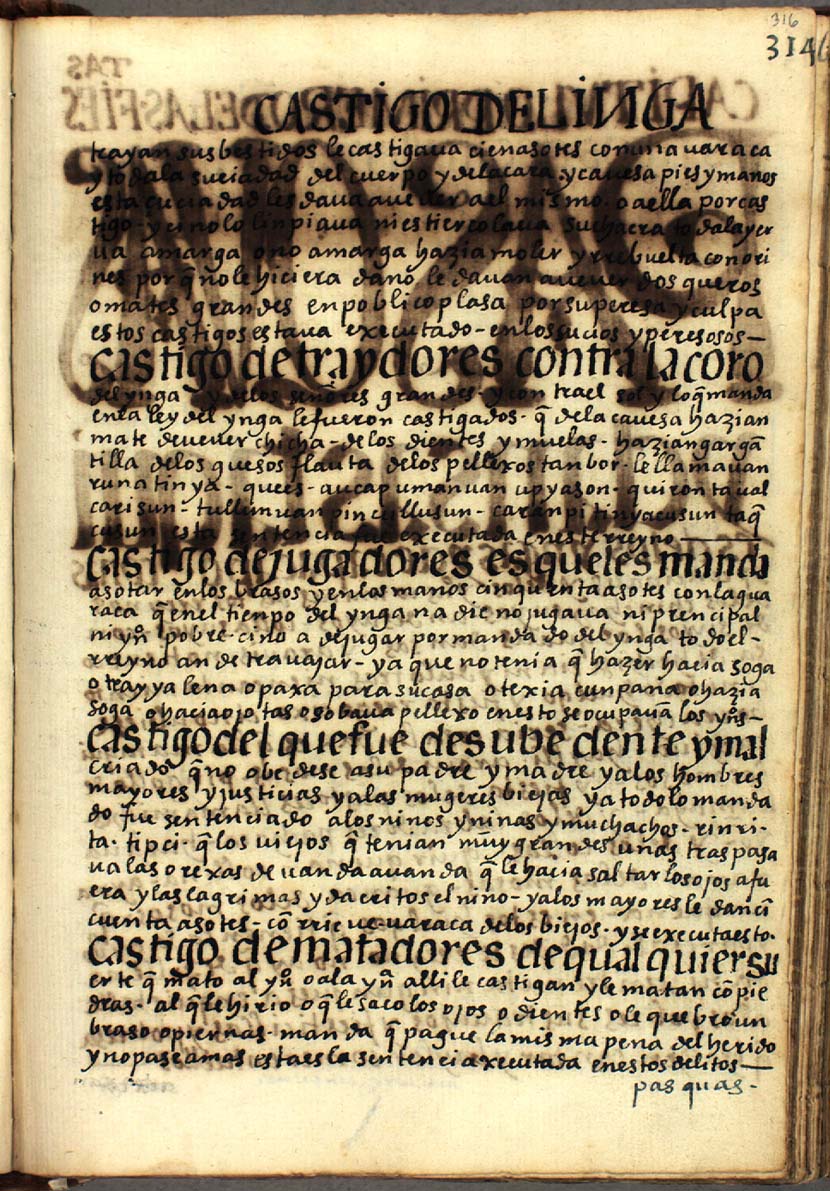 316
314
CASTIGO DELINGA
trayan sus bestidos le castigaua cien asotes con una uaraca
y toda la sueciadad del cuerpo y de la cara y cauesa pies y manos
esta cuciadad les daua a ueuer a el mismo o a ella por cas
tigo y ci no lo linpiaua ni estiercolaua su chacra toda la yer
ua amarga o no amarga hazia moler y rrebuelta con ori
nes porq̃ no le hiciera daño le dauan a ueuer dos queros
o mates grandes en poblico plasa por su peresa y culpa
estos castigos estaua executado - en los sucios y peresosos -
castigo de traydores contra la coro
del ynga y de los señores grandes y contra el sol y lo q̃ manda
en la ley del ynga le fueron castigados - q̃ de la cauesa hazian
mate de ueuer chicha - de los dientes y muelas - hazian gargã
tilla de los guesos flauta de los pellexos tanbor - le llamauan
runa tinya - que es - aucap umanuan upyason - quironta ual
carisun - tullunuan pincullusun - caranpi tinyacusun taq̃
cusun esta sentencia fue executada en este rreyno
castigo de jugadores es que les manda
asotar en los brasos y en los manos cinquenta asotes con la gua
raca q̃ en el tienpo del ynga nadie no jugaua ni prencipal
ni yn̄ pobre - cino a de jugar por mandado del ynga todo el -
rreyno an de trauajar - ya que no tenia q̃ hazer hacia soga
o tray ya lena o paxa para su casa o texia cunpana o hazia
soga o hacia ojotas o sobaua pellexo en esto se ocupauã los yn̄s -
castigo del que fue desubedente y mal
criado q̃ no obedese a su padre y madre y a los hombres
mayores y justicias y a las mugeres biejas y a todo lo manda
do fue sentenciado a los ninos y ninas y muchachos - rinri -
ta - tipci - q̃ los uiejos q̃ tenian muy grandes uñas traspasa
ua las orexas de uanda a uanda q̃ le hacia saltar los ojos afu
era y las lagrimas y da critos el nino - y a los mayores le dan cĩ
cuenta asotes - cõ rrieue uaraca de los biejos - y se executa esto -
castigo de matadores de qualquier su
erte q̃ mato al yn̄ o a la yn̄ alli le castigan y le matan cõ pie
dras - al q̃ le hirio o q̃ le saco los ojos o dientes o le quebro un
braso o piernas - manda q̃ pague la misma pena del herido
y no pase a mas esta es la sentencia xecutada en estos delitos -
pasquas -